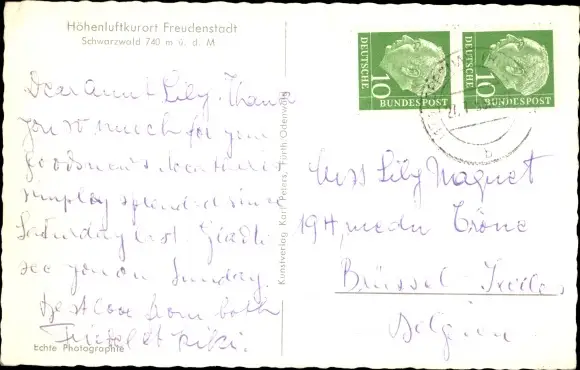 Höhenluftkurort Freudenstadt
Schwarzwald 740 m ü. d. M
Dear Aunt Lily. Thank
you so much for your
goodness. Weather is
simply splendid since
Saturday last.
see you on Sunday.
Best love from both
Friedel et Kiki.
Echte Photographie
Kunstverlag Karl Peters, Fürth/Odenwald
DEUTSCHE
10
BUNDESPOST
DEUTSCHE
10
BUNDESPOST
b
Miss Lily Magnet
194,
Brüssel-Ixelles
Belgien